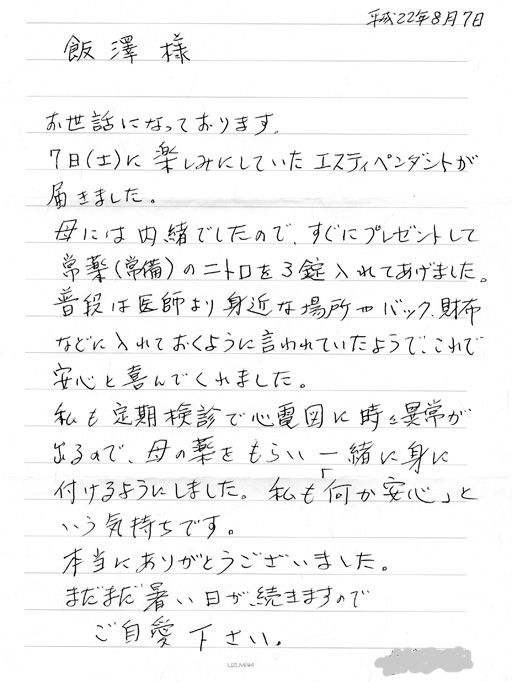 平成22年8月7日
飯澤 様
お世話になっております。
7日(土)に楽しみにしていたエスティペンダントが
届きました。
母には内緒でしたので、すぐにプレゼントして
常薬(常備)のニトロを3錠入れてあげました。
普段は医師より身近な場所やバック、財布
などに入れておくように言われていたようで、これで
安心と喜んでくれました。
私も定期検診で心電図に時々異常が
出るので、母の薬をもらい一緒に身に
付けるようにしました。私も「何か安心」と
いう気持ちです。
本当にありがとうございました。
まだまだ暑い日が、続きますので
ご自愛下さい。